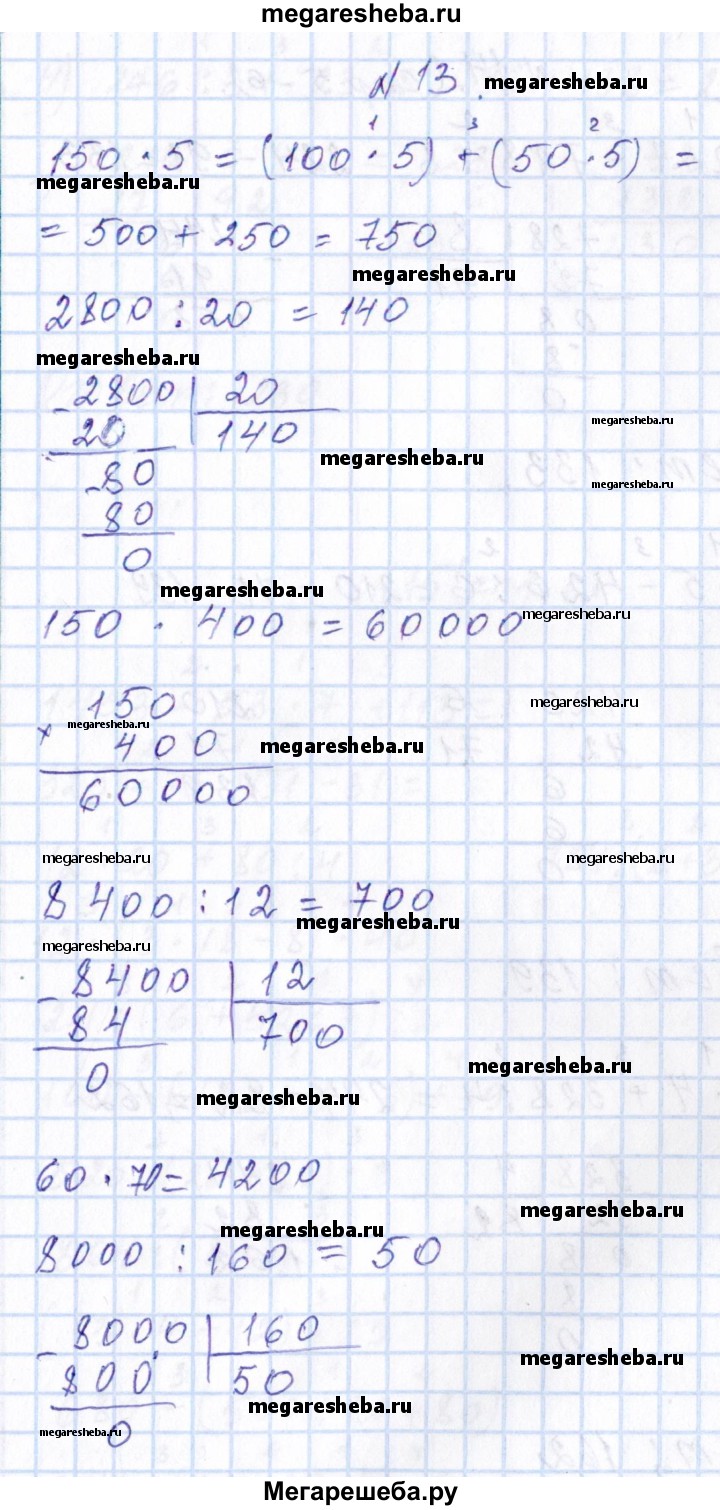 megaresheba.ru
N 13. megaresheba.ru
1 3 2
150 · 5 = (100 · 5) + (50 · 5) =
megaresheba.ru megaresheba.ru
= 500 + 250 = 750
megaresheba.ru
2800 : 20 = 140
megaresheba.ru
- 2800 | 20
megaresheba.ru
20 140
megaresheba.ru
- 80 megaresheba.ru
80
0
megaresheba.ru
150 · 400 = 60000 megaresheba.ru
150 megaresheba.ru
megaresheba.ru
× 400 megaresheba.ru
60000
megaresheba.ru megaresheba.ru
8400 : 12 = 700
megaresheba.ru
megaresheba.ru
- 8400 | 12
84 700
megaresheba.ru
0
megaresheba.ru
60 · 70 = 4200
megaresheba.ru
megaresheba.ru
8000 : 160 = 50
- 8000 | 160
megaresheba.ru
800 50
megaresheba.ru
megaresheba.ru 0
Мегарешеба.ру